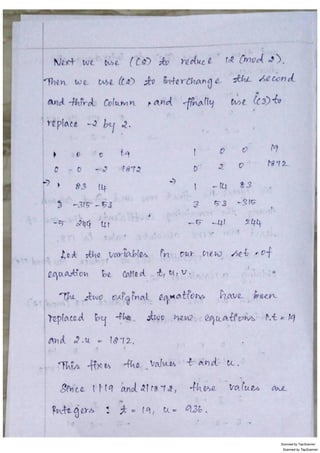 Next we use (C2) to reduce 12 (mod 2).
Then we use (C2) to interchange the second
and third column, and finally use (C3) to
replace -2 by 2.
1 0 0 19 1 0 0 19
0 0 -2 1872 0 2 0 1872
→ 1 83 14 → 1 -14 83
3 -315 -53 3 53 -315
-5 244 41 -5 -41 244
Let the variables in our new set of
equation be called t, u, v.
The two original equations have been
replaced by the two new equations 1.t = 19
and 2.u = 1872.
This fixes the values t and u.
Since 1|19 and 2|1872, these values are
integers : t = 19, u = 936.
Scanned by TapScanner
Scanned by TapScanner